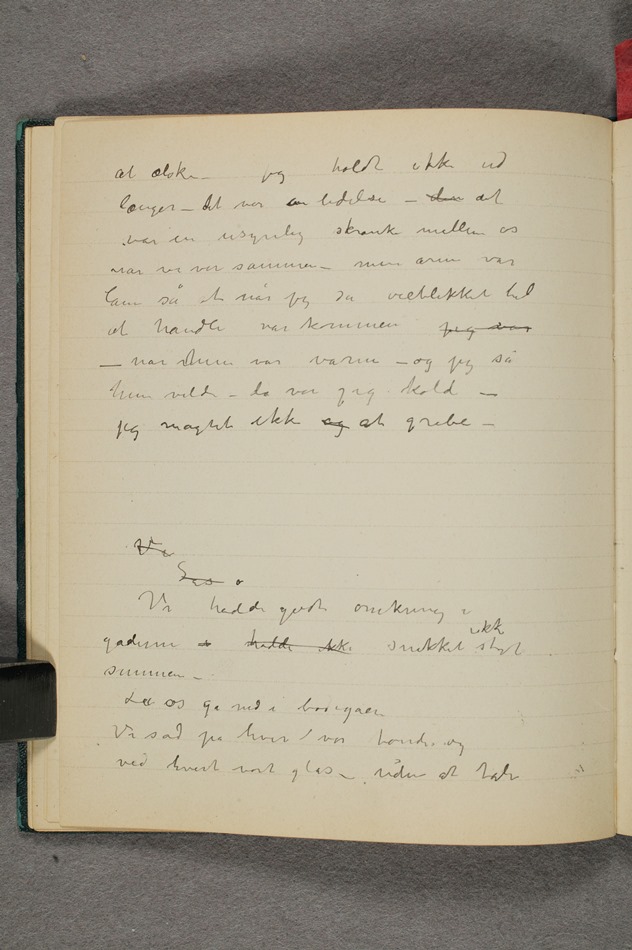 at elske – jeg holdt ikke ud
længer – det var en lidelse – den at
var en usynlig skranke mellem os
når vi var sammen – min arm var
lam så at når jeg da vieblikket til
at handle var kommen jeg var
– når hun var varm – og jeg så
hun vilde – da var jeg kold –
jeg magtet ikke og at gribe –
Vi
Vi hadde gådt omkring i
gaderne hadde ikke snakket ikke stort
sammen –
La os gå ned i bodegaen
Vi sad på hver vor tønde og
ved hvert vort glas – uden at tale